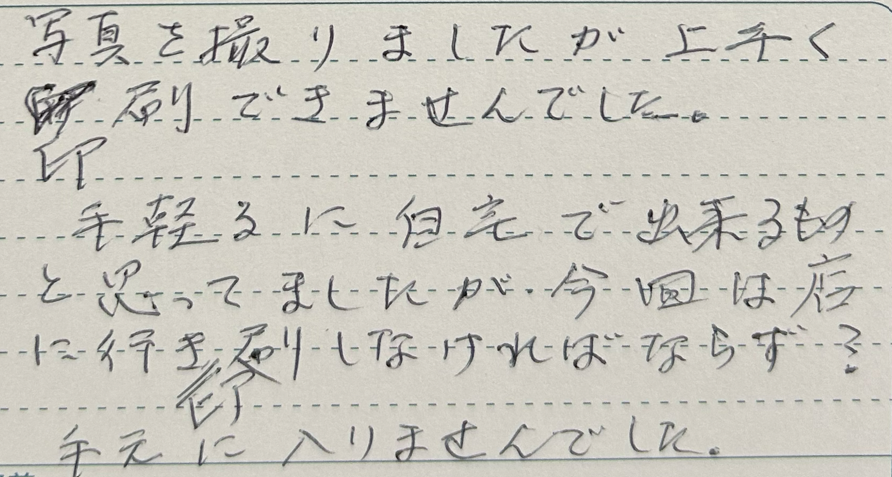 写真を撮りましたが上手く
刷できませんでした。
印
手軽るに自宅で出来るもの
と思ってましたが.今回は店
に行き刷りしなければならず?
印
手元に入りませんでした。